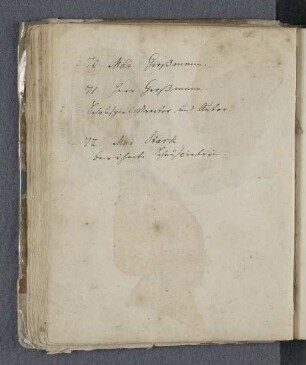 70 Mad Großmann.
71. Herr Großmann
Schauspiel Director und Autor.
72 Mad Stark
berühmte Schauspielerin